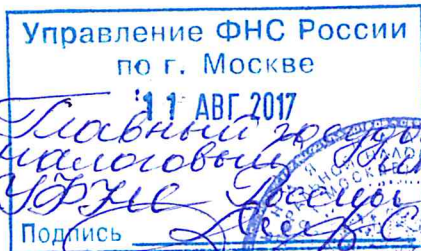 Управление ФНС России
по г. Москве
11 АВГ 2017
Главный госуд
налоговый
УФНС России
Подпись